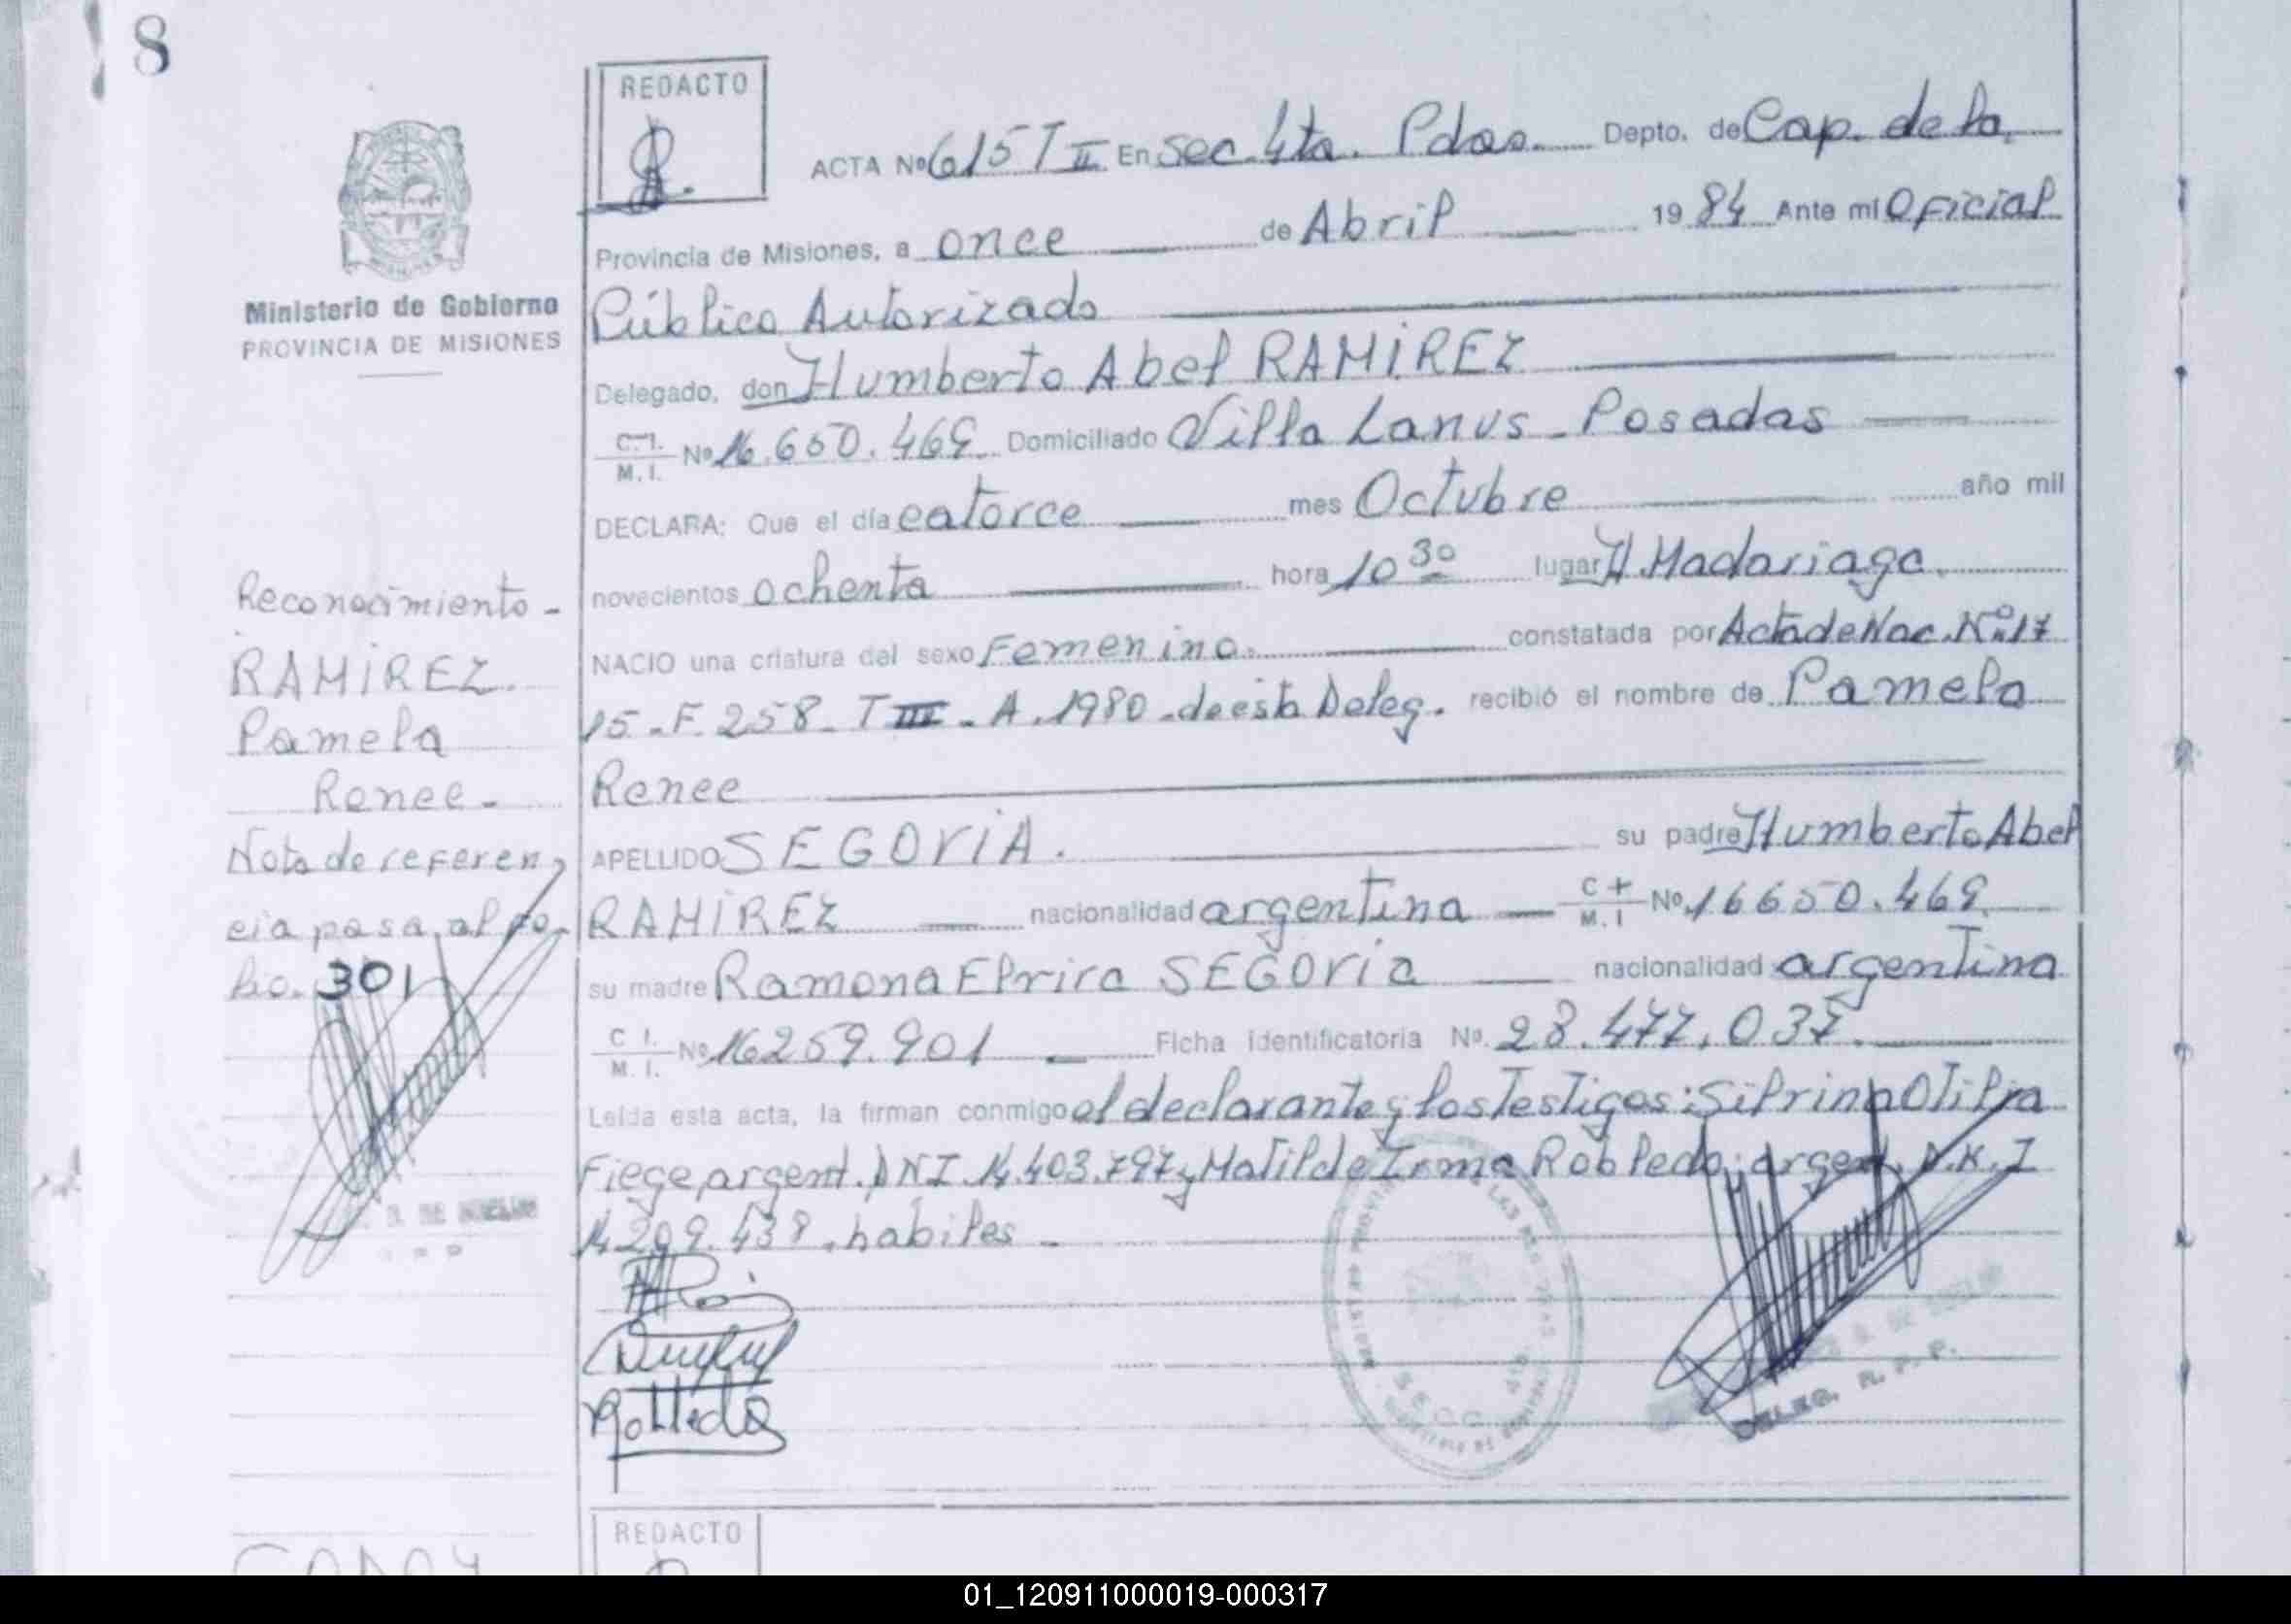 8
REDACTO
ACTA Nº 615 T II En Sec. 4ta. Pdas. Depto. de Cap. de la
Provincia de Misiones, a once de Abril 1984 Ante mi Oficial
Ministerio de Gobierno
PROVINCIA DE MISIONES
Público Autorizado
Delegado, don Humberto Abel RAMIREZ
C.I. M.I. Nº 16.650.469 Domiciliado Villa Lanus - Posadas
DECLARA: Que el día catorce mes Octubre año mil
novecientos ochenta hora 10 30 lugar H. Madariaga.
NACIO una criatura del sexo Femenino. constatada por Acta de Nac. Nº 17
15 - F. 258 - T III - A. 1980 - de esta Deleg. recibió el nombre de Pamela
Renee
APELLIDO SEGOVIA. su padre Humberto Abel
RAMIREZ nacionalidad argentina C M.I Nº 16650.469
su madre Ramona Elvira SEGOVIA nacionalidad argentina
C I. M. I. Nº 16259.901 Ficha identificatoria Nº. 28.477.037.
Leída esta acta, la firman conmigo el declarante y los Testigos: Silvina
Fiege, argent. DNI. 14.403.797 y Matilde Irma Robledo, argent. D.N.I
14209.438. habiles -
Reconocimiento -
RAMIREZ.
Pamela
Renee -
Nota de referen
cia pasa al fo-
lio. 301
DELEG. R. P. P.
REDACTO
01_120911000019-000317